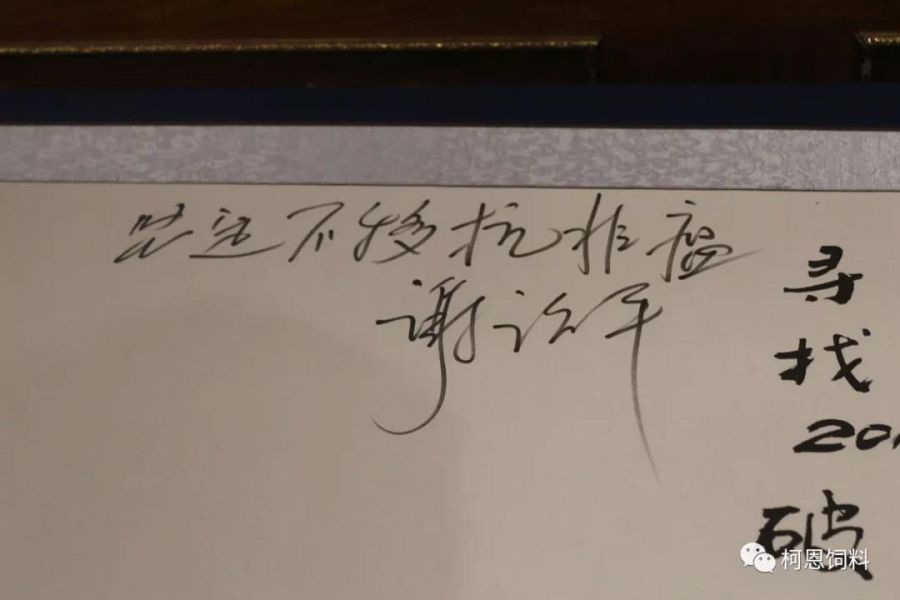 坚定不移抗非瘟
谢谈平
寻
找
20
破
柯恩饲料